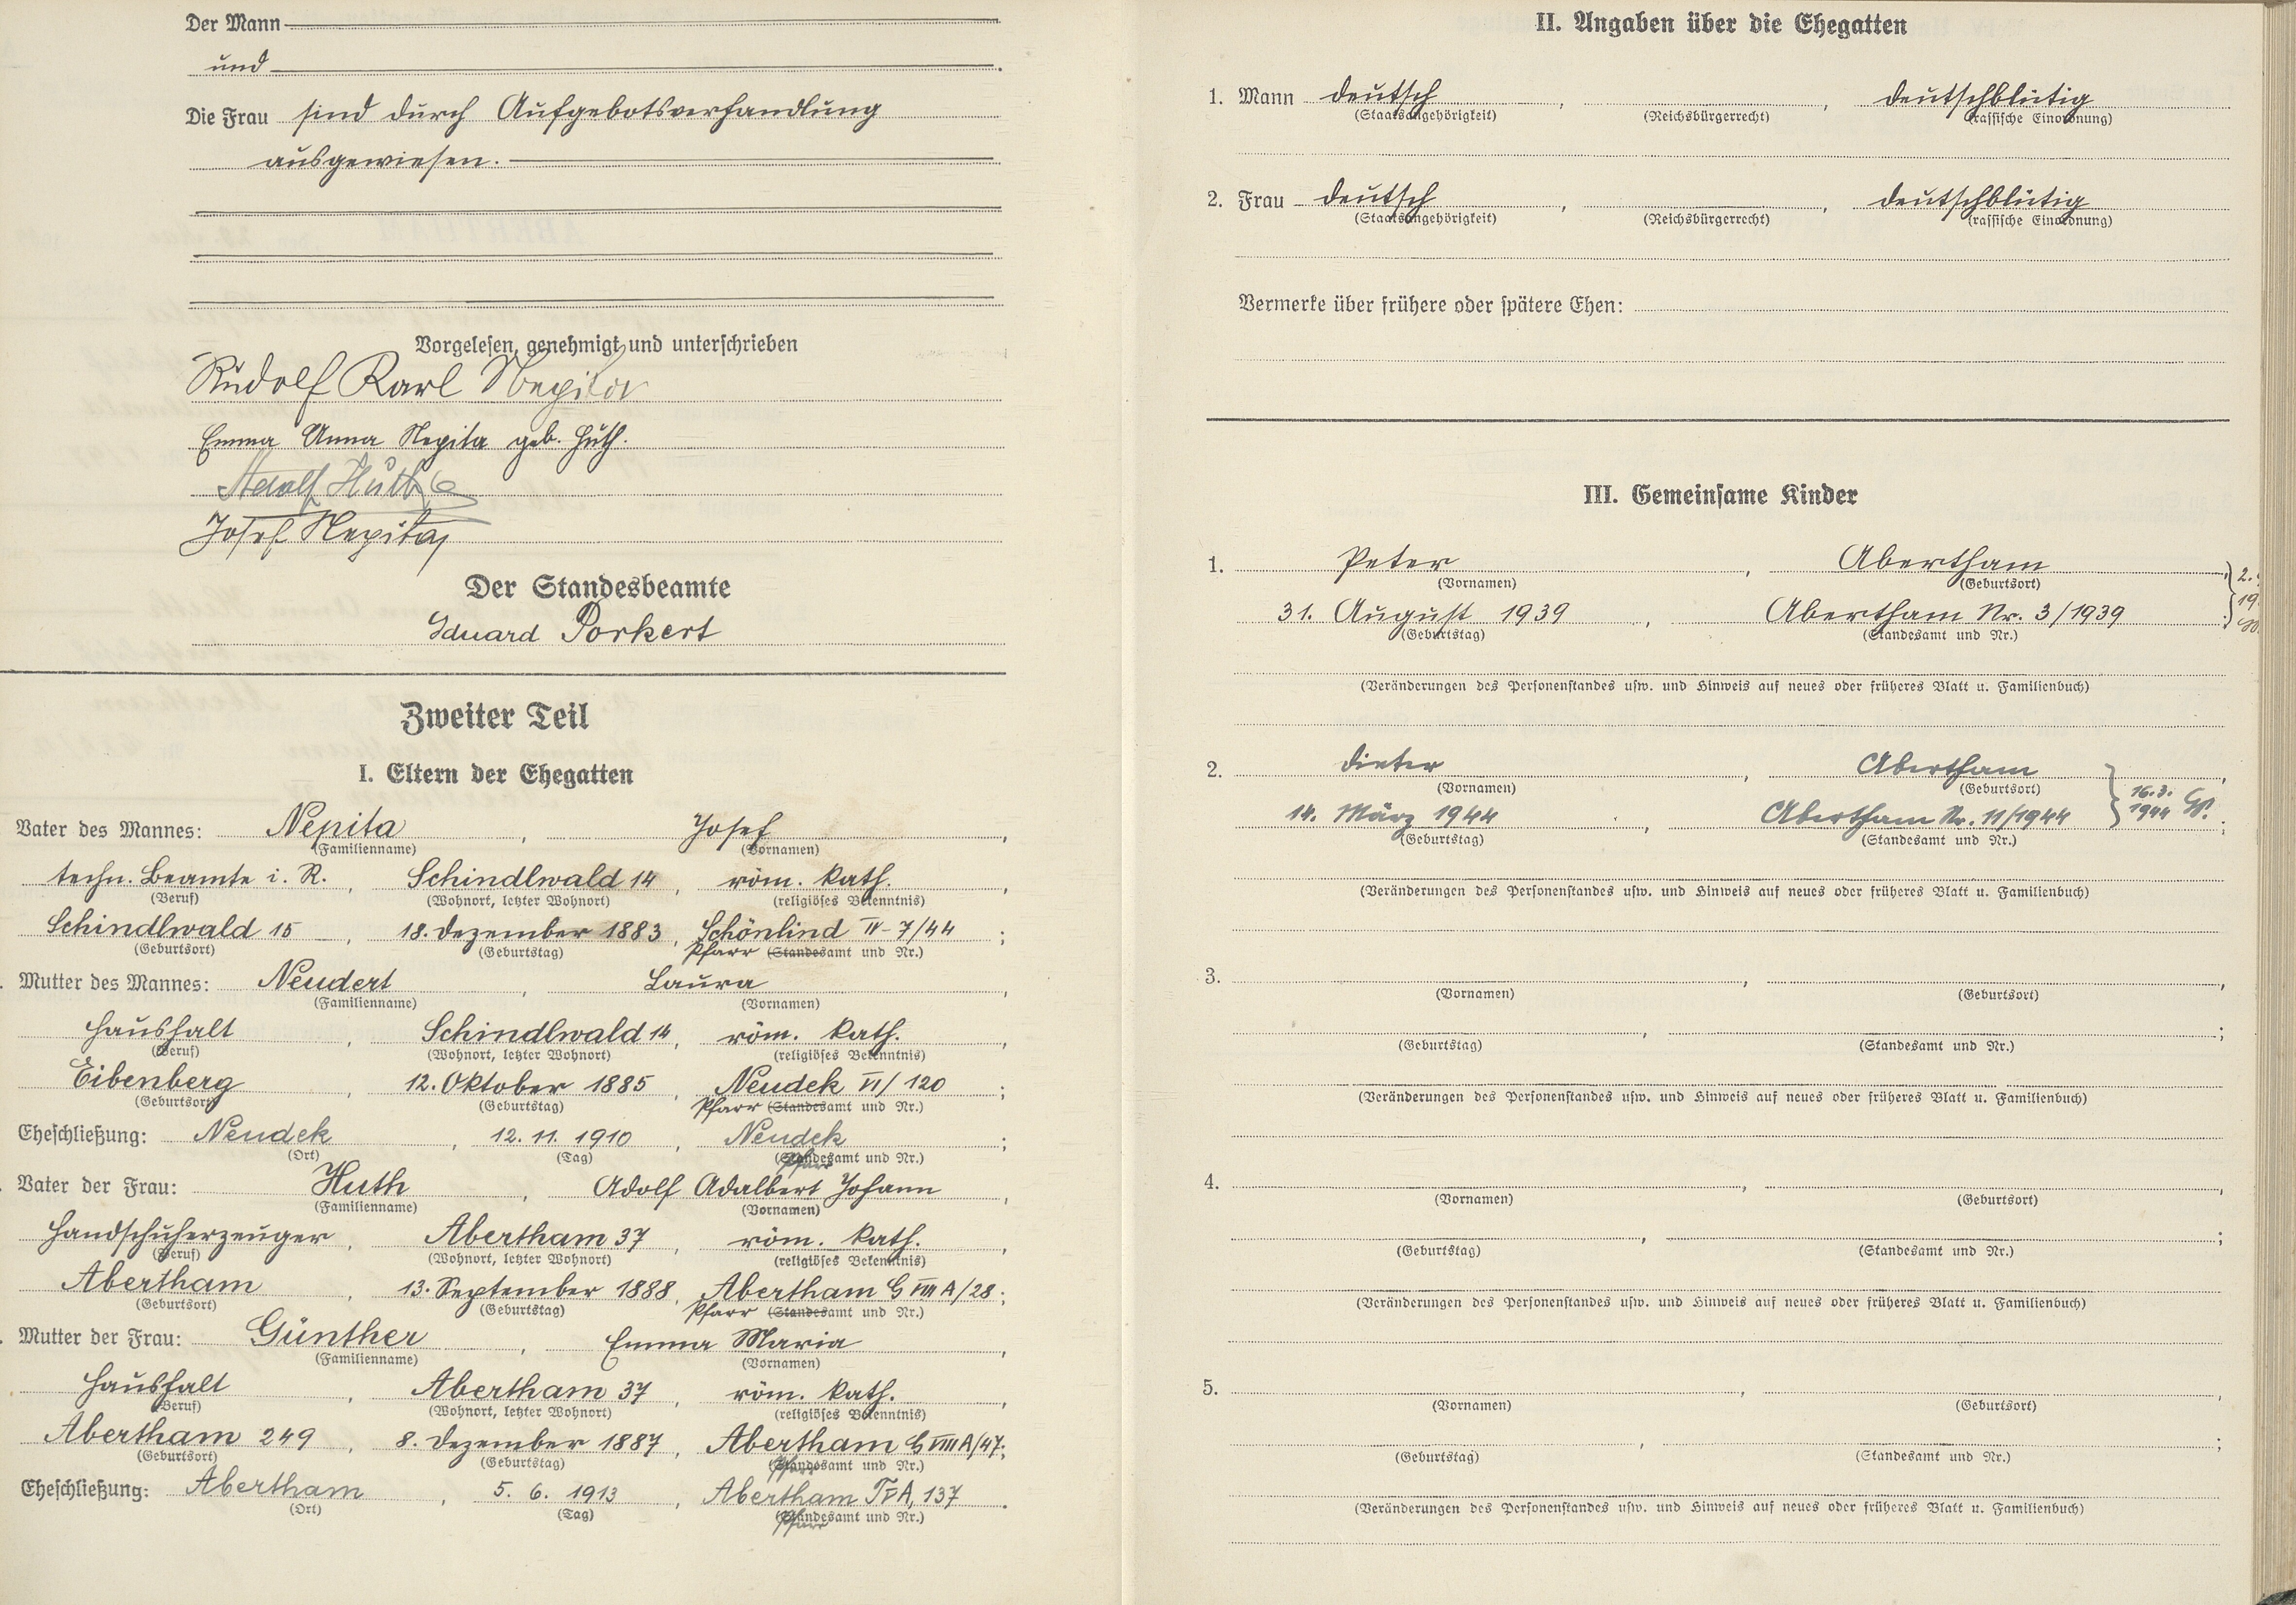 Der Mann
und
Die Frau sind durch Aufgebotsverhandlung
ausgewiesen.
Vorgelesen, genehmigt und unterschrieben
Rudolf Karl Nepita
Emma Anna Nepita geb. Huth.
Adolf Huth
Josef Nepita
Der Standesbeamte
Eduard Porkert
Zweiter Teil
I. Eltern der Ehegatten
Vater des Mannes: Nepita, Josef,
(Familienname) (Vornamen)
techn. Beamte i. R., Schindlwald 14, röm. kath.,
(Beruf) (Wohnort, letzter Wohnort) (religiöses Bekenntnis)
Schindlwald 15, 18. Dezember 1883, Schönlind IV-7/44;
(Geburtsort) (Geburtstag) Pfarr (Standesamt und Nr.)
Mutter des Mannes: Neudert, Laura,
(Familienname) (Vornamen)
Haushalt, Schindlwald 14, röm. kath.,
(Beruf) (Wohnort, letzter Wohnort) (religiöses Bekenntnis)
Eibenberg, 12. Oktober 1885, Neudek VI/120;
(Geburtsort) (Geburtstag) Pfarr (Standesamt und Nr.)
Eheschließung: Neudek, 12. 11. 1910, Neudek;
(Ort) (Tag) (Standesamt und Nr.)
Pfarr
Vater der Frau: Huth, Adolf Adalbert Johann,
(Familienname) (Vornamen)
Handschuherzeuger, Abertham 37, röm. kath.,
(Beruf) (Wohnort, letzter Wohnort) (religiöses Bekenntnis)
Abertham, 13. September 1888, Abertham G VIII A/28;
(Geburtsort) (Geburtstag) Pfarr (Standesamt und Nr.)
Mutter der Frau: Günther, Emma Maria,
(Familienname) (Vornamen)
Haushalt, Abertham 37, röm. kath.,
(Beruf) (Wohnort, letzter Wohnort) (religiöses Bekenntnis)
Abertham 249, 8. Dezember 1887, Abertham G VIII A/47;
(Geburtsort) (Geburtstag) (Standesamt und Nr.)
Pfarr
Eheschließung: Abertham, 5. 6. 1913, Abertham A, 137.
(Ort) (Tag) (Standesamt und Nr.)
Pfarr
II. Angaben über die Ehegatten
1. Mann deutsch, , deutschblütig
(Staatsangehörigkeit) (Reichsbürgerrecht) (rassische Einordnung)
2. Frau deutsch, , deutschblütig
(Staatsangehörigkeit) (Reichsbürgerrecht) (rassische Einordnung)
Vermerke über frühere oder spätere Ehen:
III. Gemeinsame Kinder
1. Peter, Abertham, 2.
(Vornamen) (Geburtsort)
31. August 1939, Abertham Nr. 3/1939; 19
(Geburtstag) (Standesamt und Nr.)
(Veränderungen des Personenstandes usw. und Hinweis auf neues oder früheres Blatt u. Familienbuch)
2. Dieter, Abertham,
(Vornamen) (Geburtsort) 16.3.
14. März 1944, Abertham Nr. 11/1944 1944;
(Geburtstag) (Standesamt und Nr.)
(Veränderungen des Personenstandes usw. und Hinweis auf neues oder früheres Blatt u. Familienbuch)
3. , ,
(Vornamen) (Geburtsort)
, ;
(Geburtstag) (Standesamt und Nr.)
(Veränderungen des Personenstandes usw. und Hinweis auf neues oder früheres Blatt u. Familienbuch)
4. , ,
(Vornamen) (Geburtsort)
, ;
(Geburtstag) (Standesamt und Nr.)
(Veränderungen des Personenstandes usw. und Hinweis auf neues oder früheres Blatt u. Familienbuch)
5. , ,
(Vornamen) (Geburtsort)
, ;
(Geburtstag) (Standesamt und Nr.)
(Veränderungen des Personenstandes usw. und Hinweis auf neues oder früheres Blatt u. Familienbuch)